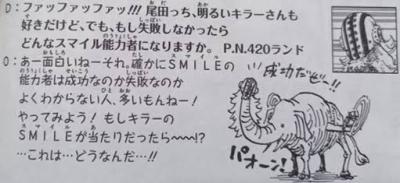 D:ファッファッファッ!!!尾田っち、明るいキラーさんも
好きだけど、でも、もし失敗しなかったら
どんなスマイル能力者になりますか。P.N.420ランド
O:あー面白いねーそれ。確かにSMILEの
能力者は成功なのか失敗なのか
よくわからない人、多いもんねー!
やってみよう!もしキラーの
SMILEが当たりだったら~~~!?
…これは…どうなんだ…!!
成功だぜ…!!
パオーン!